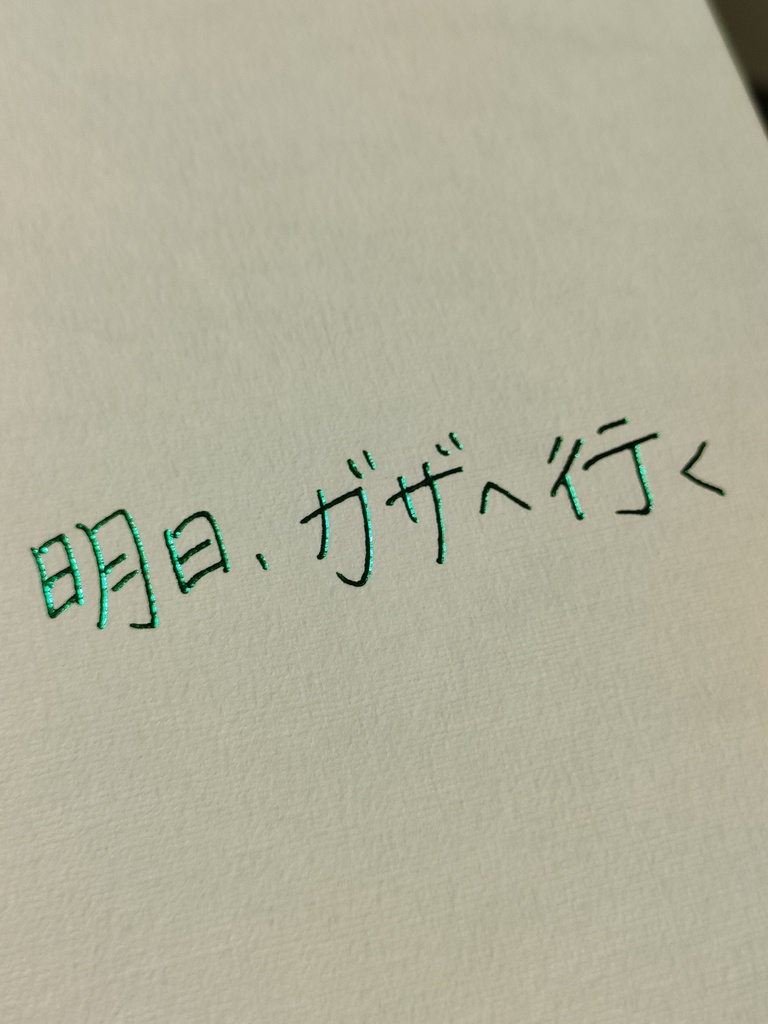 明日、ガザへ行く